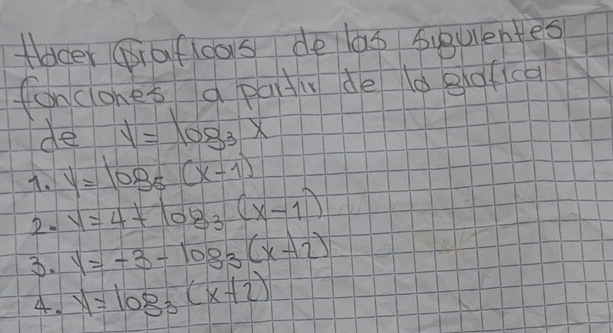 Hacer Graficas de las siguientes
fonciones a partir de la grafica
de y = log₃ x
1. y = log₅ (x-1)
2. y = 4 + log₃ (x-1)
3. y = -3 - log₃ (x+2)
4. y = log₃ (x+2)